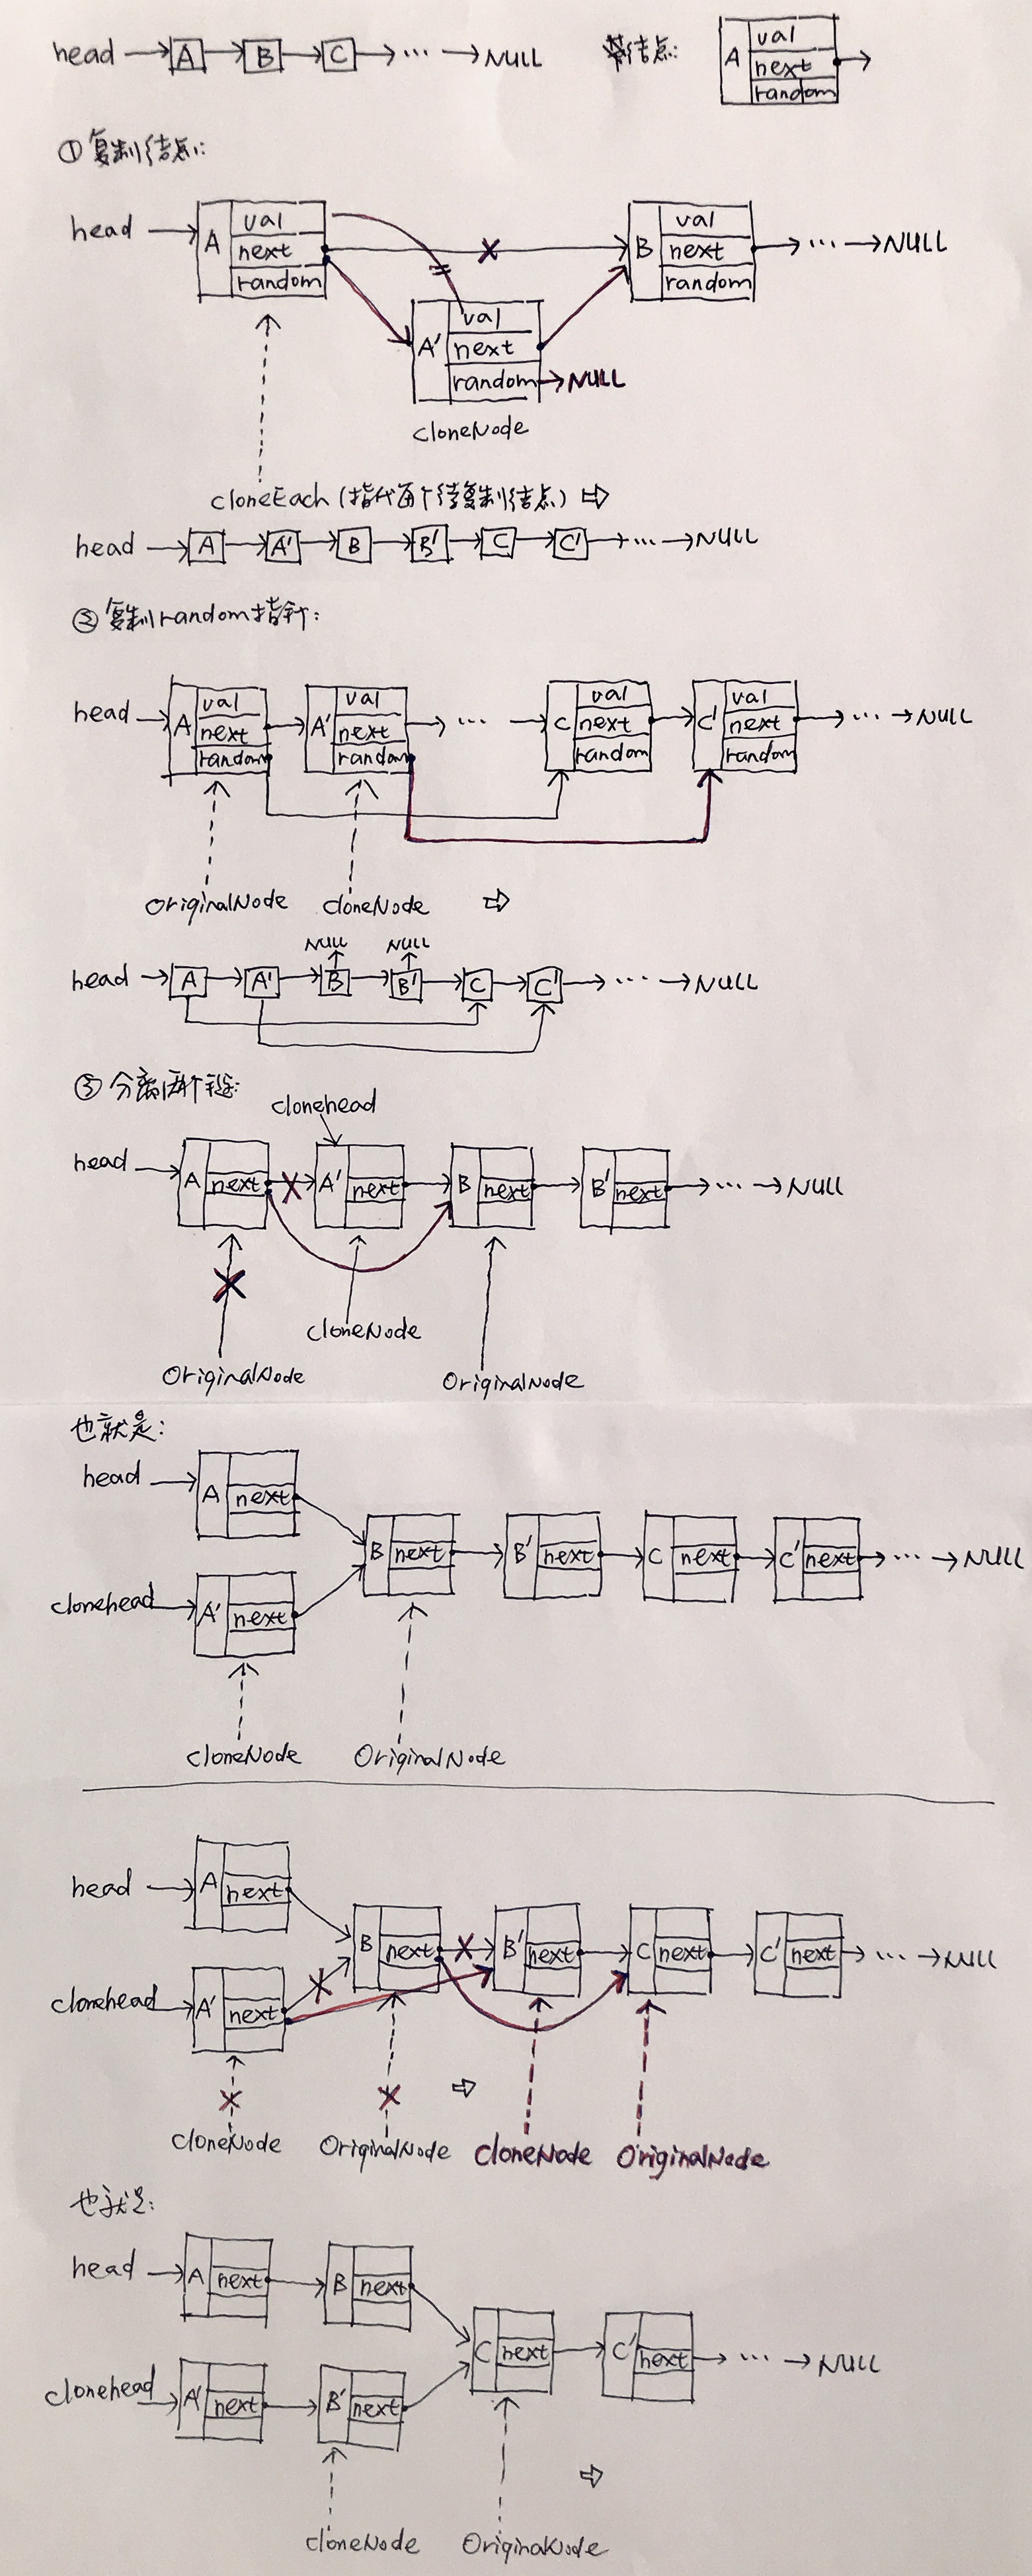 head A B C ... NULL 结点:
A val
next
random
①复制结点:
head A val
next
random
B val
next
random
... NULL
A' val
next
random NULL
cloneNode
cloneEach (指代每个待复制结点)
head A A' B B' C C' ... NULL
②复制random指针:
head A val
next
random
A' val
next
random
...
C val
next
random
C' val
next
random
... NULL
OriginalNode cloneNode
NULL NULL
head A A' B B' C C' ... NULL
③分离两个链:
clonehead
head A next A' next B next B' next ... NULL
cloneNode
OriginalNode OriginalNode
也就是:
head A next
B next B' next C next C' next ... NULL
clonehead A' next
cloneNode OriginalNode
head A next
B next B' next C next C' next ... NULL
clonehead A' next
cloneNode OriginalNode cloneNode OriginalNode
也就是:
head A next B next
C next C' next ... NULL
clonehead A' next B' next
cloneNode OriginalNode